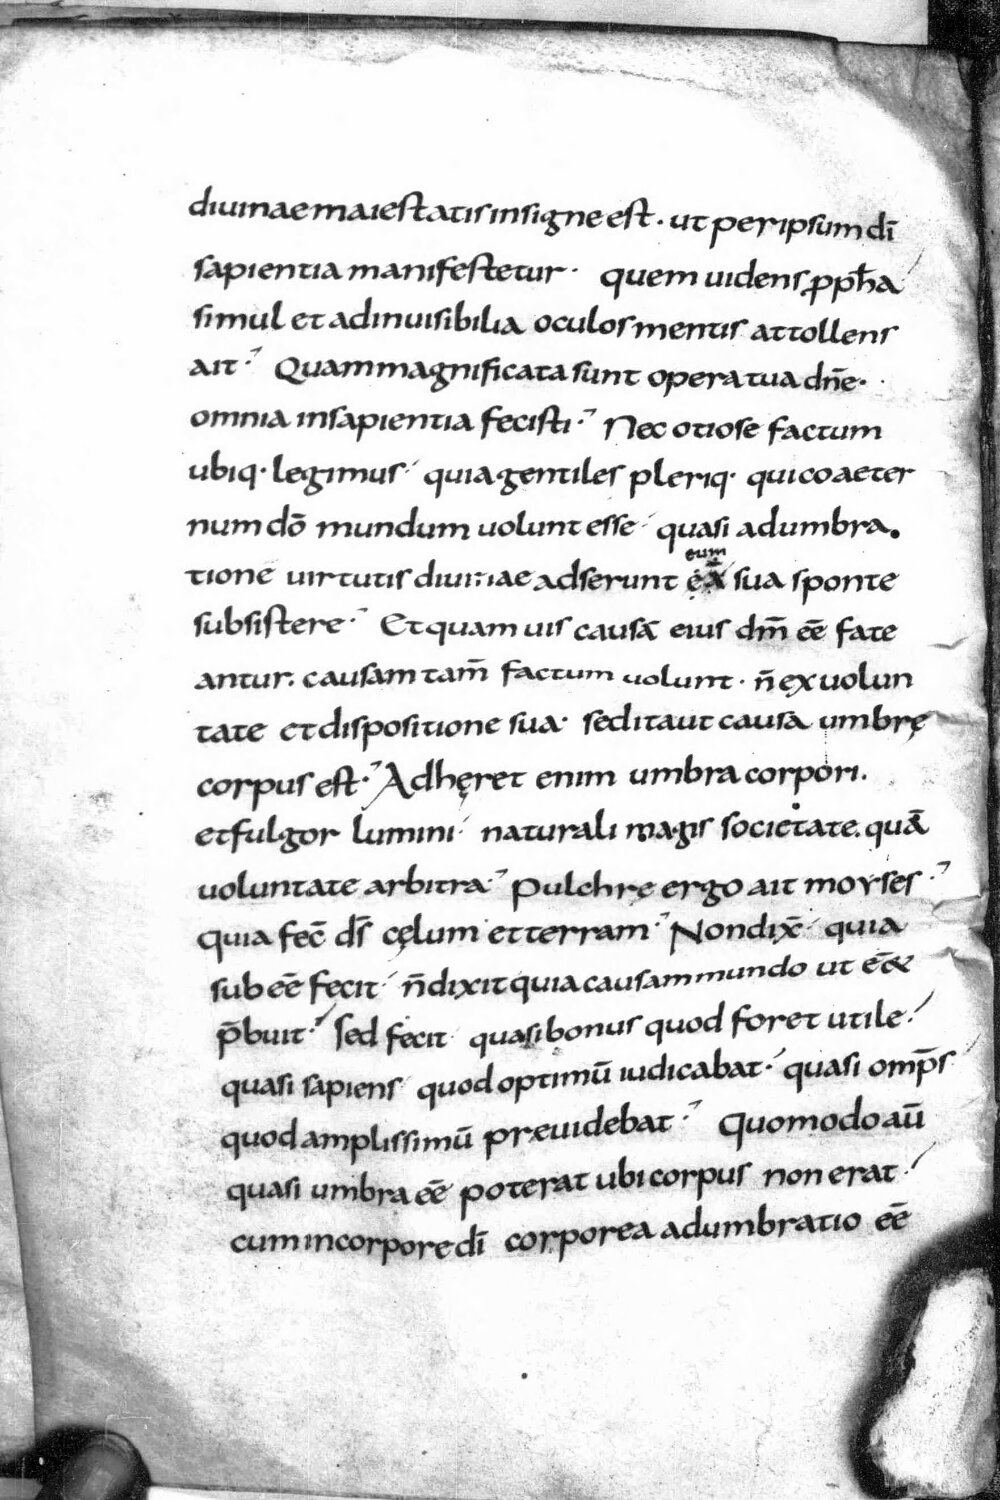 diuinae maiestatis insigne est. ut per ipsum dī
sapientia manifestetur. quem uidens ꝓpħa
simul et ad inuisibilia oculos mentis attollens
ait. Quam magnificata sunt opera tua dn̄e.
omnia in sapientia fecisti. Nec otiose factum
ubiq. legimus quia gentiles pleriq. qui coaeter
num dō mundum uolunt esse quasi adumbra
eum
tionē uirtutis diuinae adserunt eā sua sponte
subsistere. Et quam uis causā eius dm̄ eē fate
antur. causam tam̄ factum uolunt. n̄ ex uolun
tate et dispositione sua. sed ita ut causa umbrę
corpus est. Adhęret enim umbra corpori.
et fulgor lumini naturali magis societate. quā
uoluntate arbitra. Pulchrę ergo ait moyses
quia fec̄ ds̄ cęlum et terram. Non dix̄ quia
sub eē fecit n̄ dixit quia causam mundo ut eē&
p̄buit. sed fecit quasi bonus quod foret utile.
quasi sapiens quod optimū iudicabat. quasi omp̄s
quod amplissimū preuidebat. Quomodo aū
quasi umbra eē poterat ubi corpus non erat.
cum incorporei dī corporea adumbratio eē